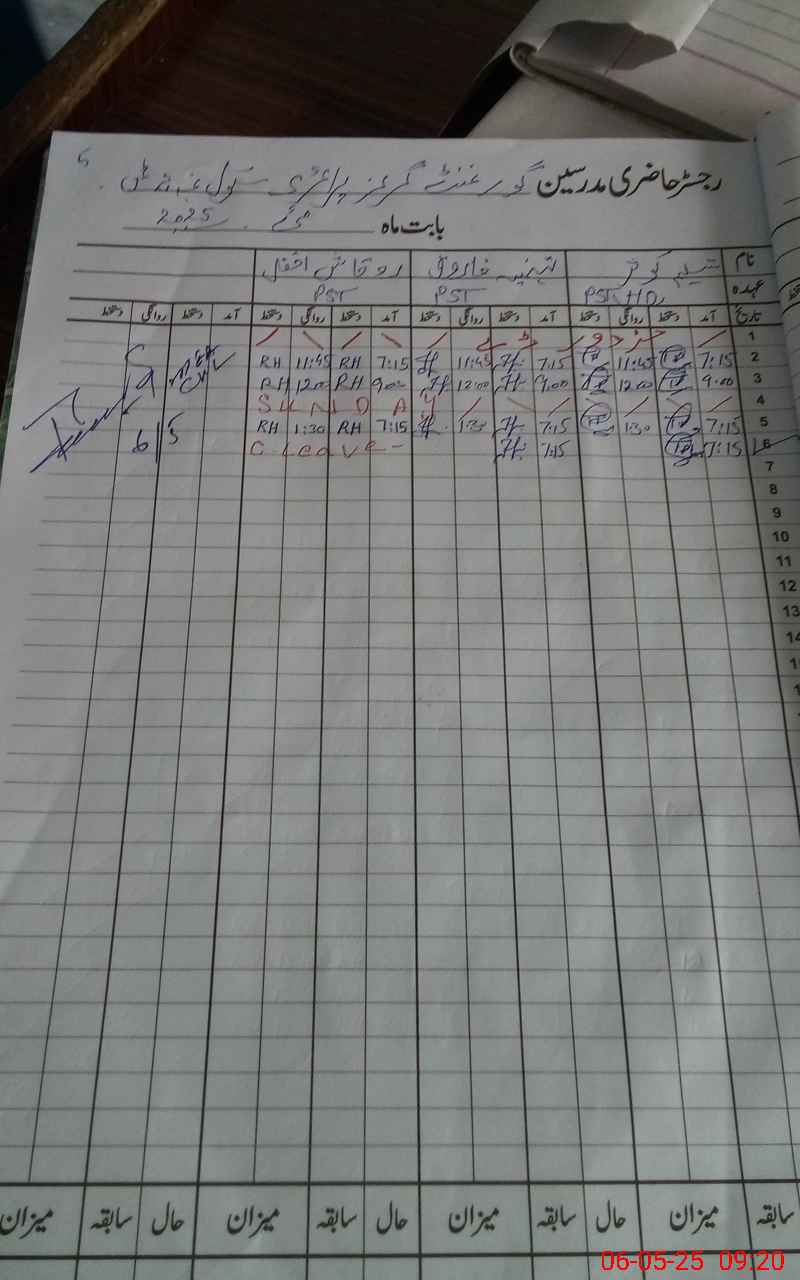 5
رجسٹر حاضری مدرسین گورنمنٹ گرلز پرائمری سکول
بابت ماہ مئی 2025
نام تسلیم کوثر فاروق
عہدہ PST HD PST PST
تاریخ آمد دستخط روانگی دستخط آمد دستخط روانگی دستخط آمد دستخط روانگی دستخط آمد دستخط روانگی دستخط
1 مزدور ڈے
2 7:15 11:45 7:15 11:45 7:15 RH 11:45 RH
3 9:00 12:00 9:00 12:00 9:00 RH 12:00 RH
4 SUNDAY
5 7:15 1:30 7:15 1:30 7:15 RH 1:30 RH
6 7:15 7:15 C. Leave - 6/5
7
8
9
10
11
12
13
سابقہ میزان حال سابقہ میزان حال سابقہ میزان حال سابقہ میزان
06-05-25 09:20